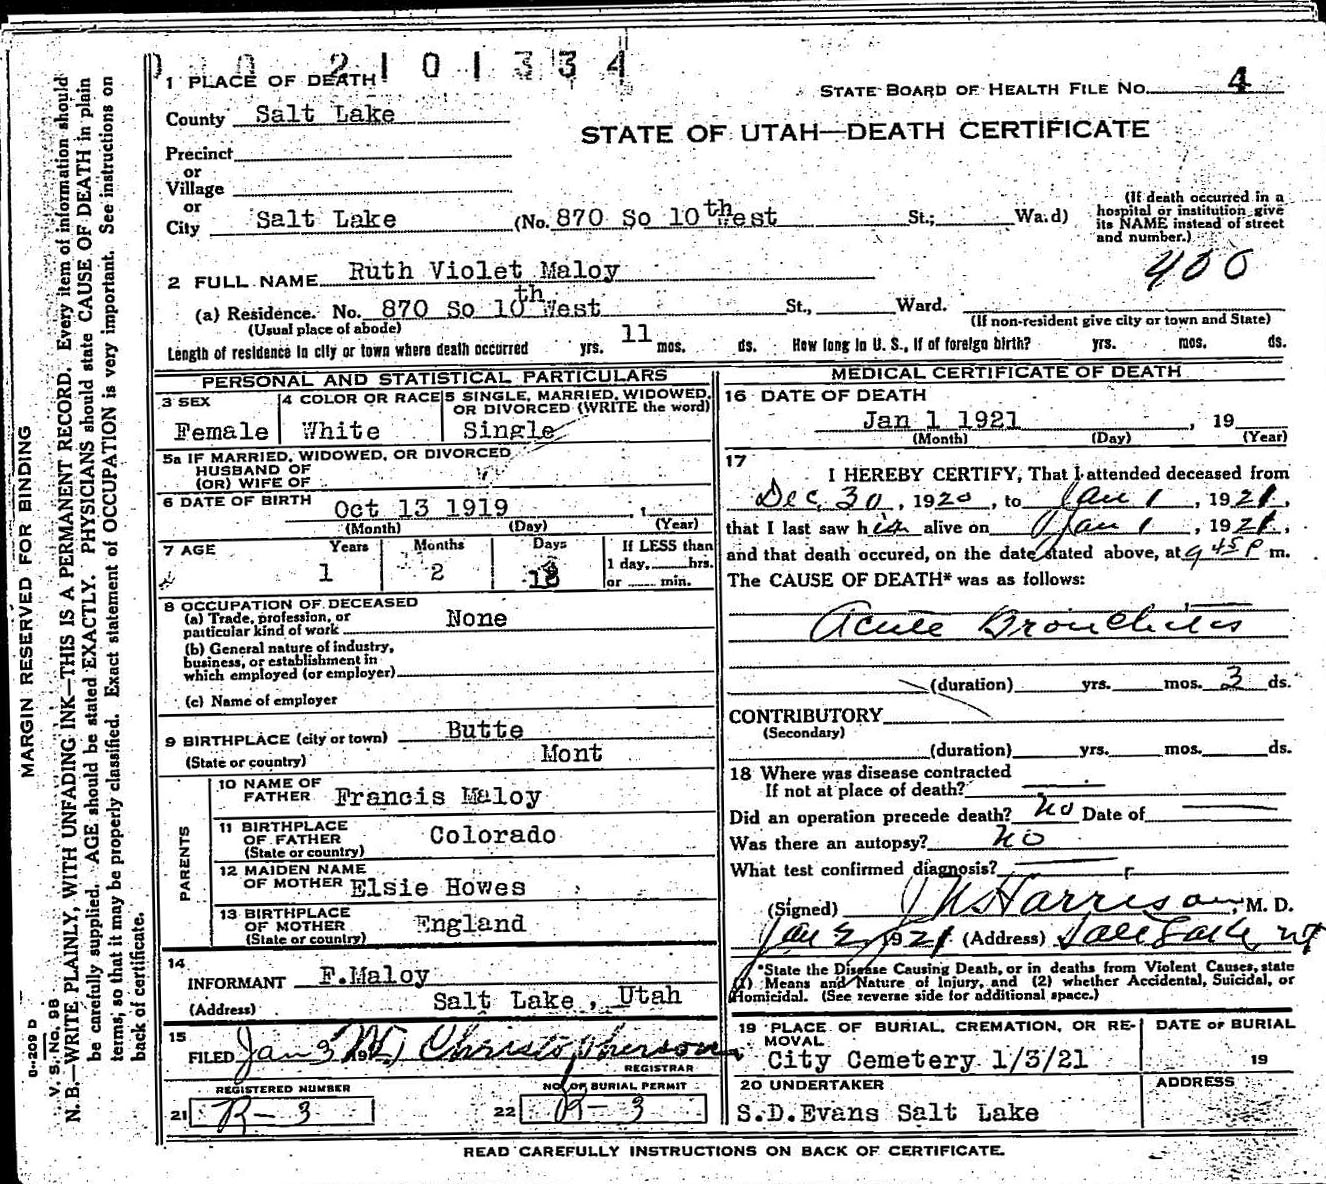 2101334
STATE BOARD OF HEALTH FILE NO. 4
STATE OF UTAH—DEATH CERTIFICATE
1 PLACE OF DEATH
County Salt Lake
Precinct
or
Village
or
City Salt Lake (No. 870 So 10th West St.; Ward)
(If death occurred in a
hospital or institution give
its NAME instead of street
and number.)
400
2 FULL NAME Ruth Violet Maloy
(a) Residence. No. 870 So 10th West St., Ward.
(Usual place of abode) (If non-resident give city or town and State)
Length of residence in city or town where death occurred yrs. 11 mos. ds. How long in U. S., if of foreign birth? yrs. mos. ds.
PERSONAL AND STATISTICAL PARTICULARS
3 SEX
Female
4 COLOR OR RACE
White
5 SINGLE, MARRIED, WIDOWED,
OR DIVORCED (WRITE the word)
Single
5a IF MARRIED, WIDOWED, OR DIVORCED
HUSBAND OF
(OR) WIFE OF
6 DATE OF BIRTH Oct 13 1919
(Month) (Day) (Year)
7 AGE Years Months Days If LESS than
1 day, hrs.
or min.
1 2
8 OCCUPATION OF DECEASED
(a) Trade, profession, or
particular kind of work None
(b) General nature of industry,
business, or establishment in
which employed (or employer)
(c) Name of employer
9 BIRTHPLACE (city or town) Butte
(State or country) Mont
PARENTS
10 NAME OF
FATHER Francis Maloy
11 BIRTHPLACE
OF FATHER Colorado
(State or country)
12 MAIDEN NAME
OF MOTHER Elsie Howes
13 BIRTHPLACE
OF MOTHER England
(State or country)
14
INFORMANT F.Maloy
(Address) Salt Lake, Utah
15
FILED Jan 3 19 Christopherson
REGISTRAR
REGISTERED NUMBER
21 R-3
NO. OF BURIAL PERMIT
22 R-3
MEDICAL CERTIFICATE OF DEATH
16 DATE OF DEATH
Jan 1 1921, 19
(Month) (Day) (Year)
17
I HEREBY CERTIFY, That I attended deceased from
Dec 30, 1920, to Jan 1, 1921,
that I last saw h alive on Jan 1, 1921,
and that death occured, on the date stated above, at 9 45 P m.
The CAUSE OF DEATH* was as follows:
Acute Bronchitis
(duration) yrs. mos. 3 ds.
CONTRIBUTORY
(Secondary)
(duration) yrs. mos. ds.
18 Where was disease contracted
If not at place of death?
Did an operation precede death? no Date of
Was there an autopsy? no
What test confirmed diagnosis?
(Signed) Harrison, M. D.
Jan 2, 1921 (Address) Salt Lake Ut
*State the Disease Causing Death, or in deaths from Violent Causes, state
(1) Means and Nature of Injury, and (2) whether Accidental, Suicidal, or
Homicidal. (See reverse side for additional space.)
19 PLACE OF BURIAL, CREMATION, OR RE-
MOVAL
City Cemetery 1/3/21
DATE OF BURIAL
19
20 UNDERTAKER
S.D.Evans Salt Lake
ADDRESS
READ CAREFULLY INSTRUCTIONS ON BACK OF CERTIFICATE.
MARGIN RESERVED FOR BINDING
V. S. No. 98
N. B.—WRITE PLAINLY, WITH UNFADING INK—THIS IS A PERMANENT RECORD. Every item of information should
be carefully supplied. AGE should be stated EXACTLY. PHYSICIANS should state CAUSE OF DEATH in plain
terms, so that it may be properly classified. Exact statement of OCCUPATION is very important. See instructions on
back of certificate.